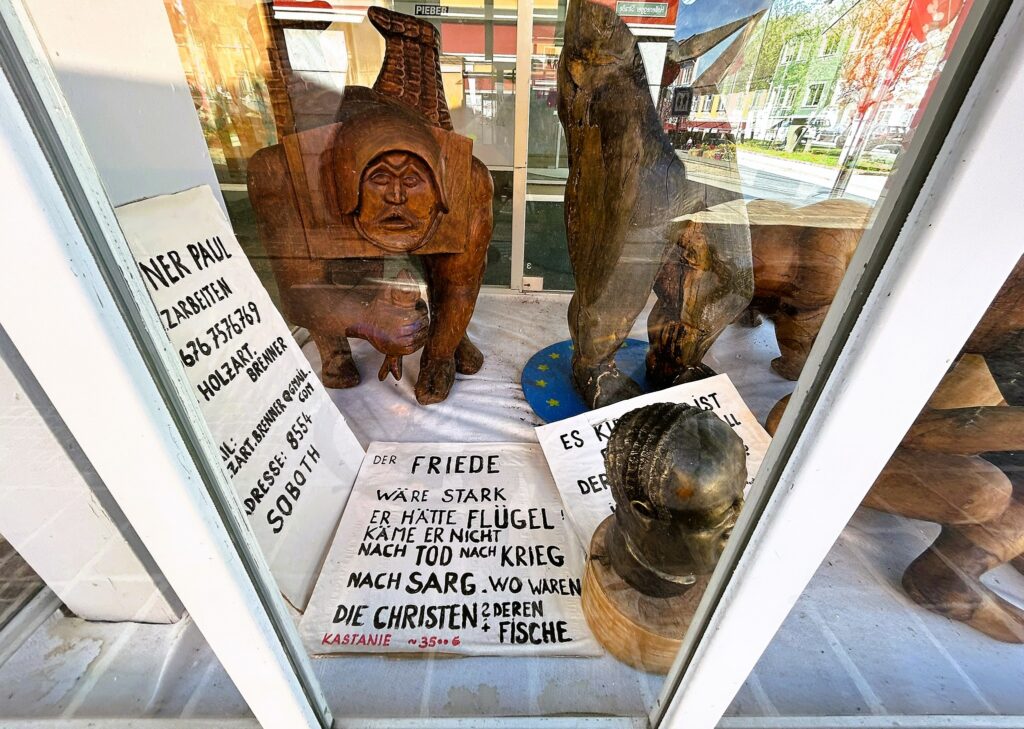 PIEBER
NER PAUL
ZARBEITEN
676 7576769
HOLZART.
BRENNER
IL:
ZART.BRENNER@GMAIL
COM
DRESSE: 8554
SOBOTH
DER FRIEDE
WÄRE STARK
ER HÄTTE FLÜGEL!
KÄME ER NICHT
NACH TOD NACH KRIEG
NACH SARG. WO WAREN
DIE CHRISTEN? DEREN
+ FISCHE
KASTANIE ~3500 €
ES IST
DER